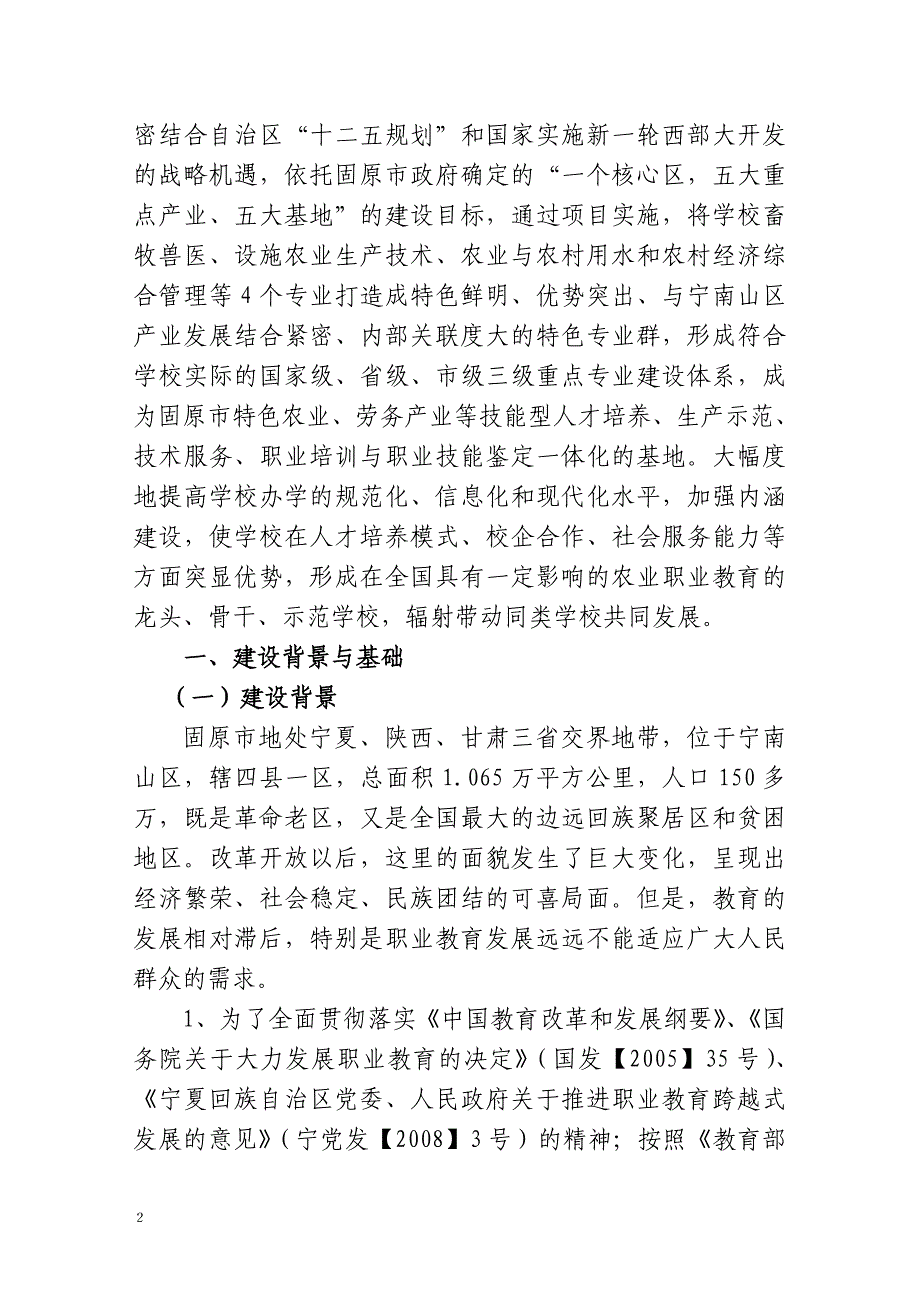 密结合自治区“十二五规划”和国家实施新一轮西部大开发
的战略机遇，依托固原市政府确定的“一个核心区，五大重
点产业、五大基地”的建设目标，通过项目实施，将学校畜
牧兽医、设施农业生产技术、农业与农村用水和农村经济综
合管理等 4 个专业打造成特色鲜明、优势突出、与宁南山区
产业发展结合紧密、内部关联度大的特色专业群，形成符合
学校实际的国家级、省级、市级三级重点专业建设体系，成
为固原市特色农业、劳务产业等技能型人才培养、生产示范、
技术服务、职业培训与职业技能鉴定一体化的基地。大幅度
地提高学校办学的规范化、信息化和现代化水平，加强内涵
建设，使学校在人才培养模式、校企合作、社会服务能力等
方面突显优势，形成在全国具有一定影响的农业职业教育的
龙头、骨干、示范学校，辐射带动同类学校共同发展。
一、建设背景与基础
（一）建设背景
固原市地处宁夏、陕西、甘肃三省交界地带，位于宁南
山区，辖四县一区，总面积 1.065 万平方公里，人口 150 多
万，既是革命老区，又是全国最大的边远回族聚居区和贫困
地区。改革开放以后，这里的面貌发生了巨大变化，呈现出
经济繁荣、社会稳定、民族团结的可喜局面。但是，教育的
发展相对滞后，特别是职业教育发展远远不能适应广大人民
群众的需求。
1、为了全面贯彻落实《中国教育改革和发展纲要》、《国
务院关于大力发展职业教育的决定》（国发【2005】35 号）、
《宁夏回族自治区党委、人民政府关于推进职业教育跨越式
发展的意见》（宁党发【2008】3 号）的精神；按照《教育部
2